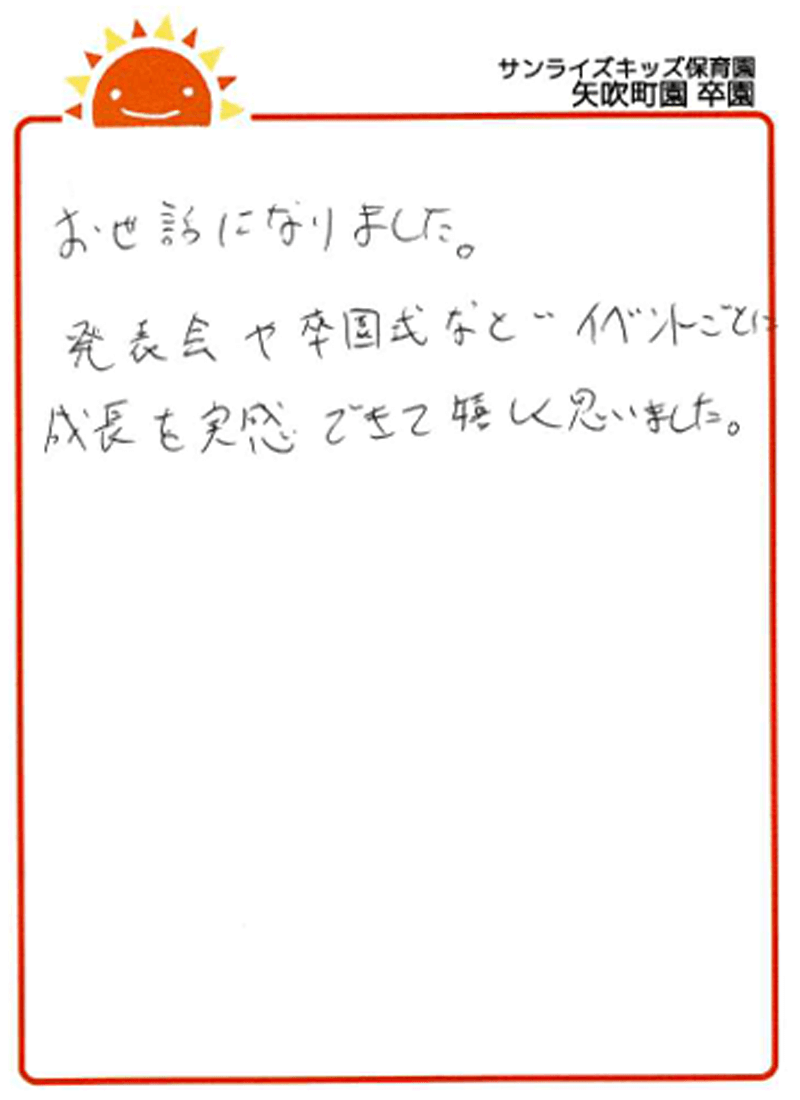 サンライズキッズ保育園
矢吹町園 卒園
お世話になりました。
発表会や卒園式など イベントごとに
成長を実感できて嬉しく思いました。